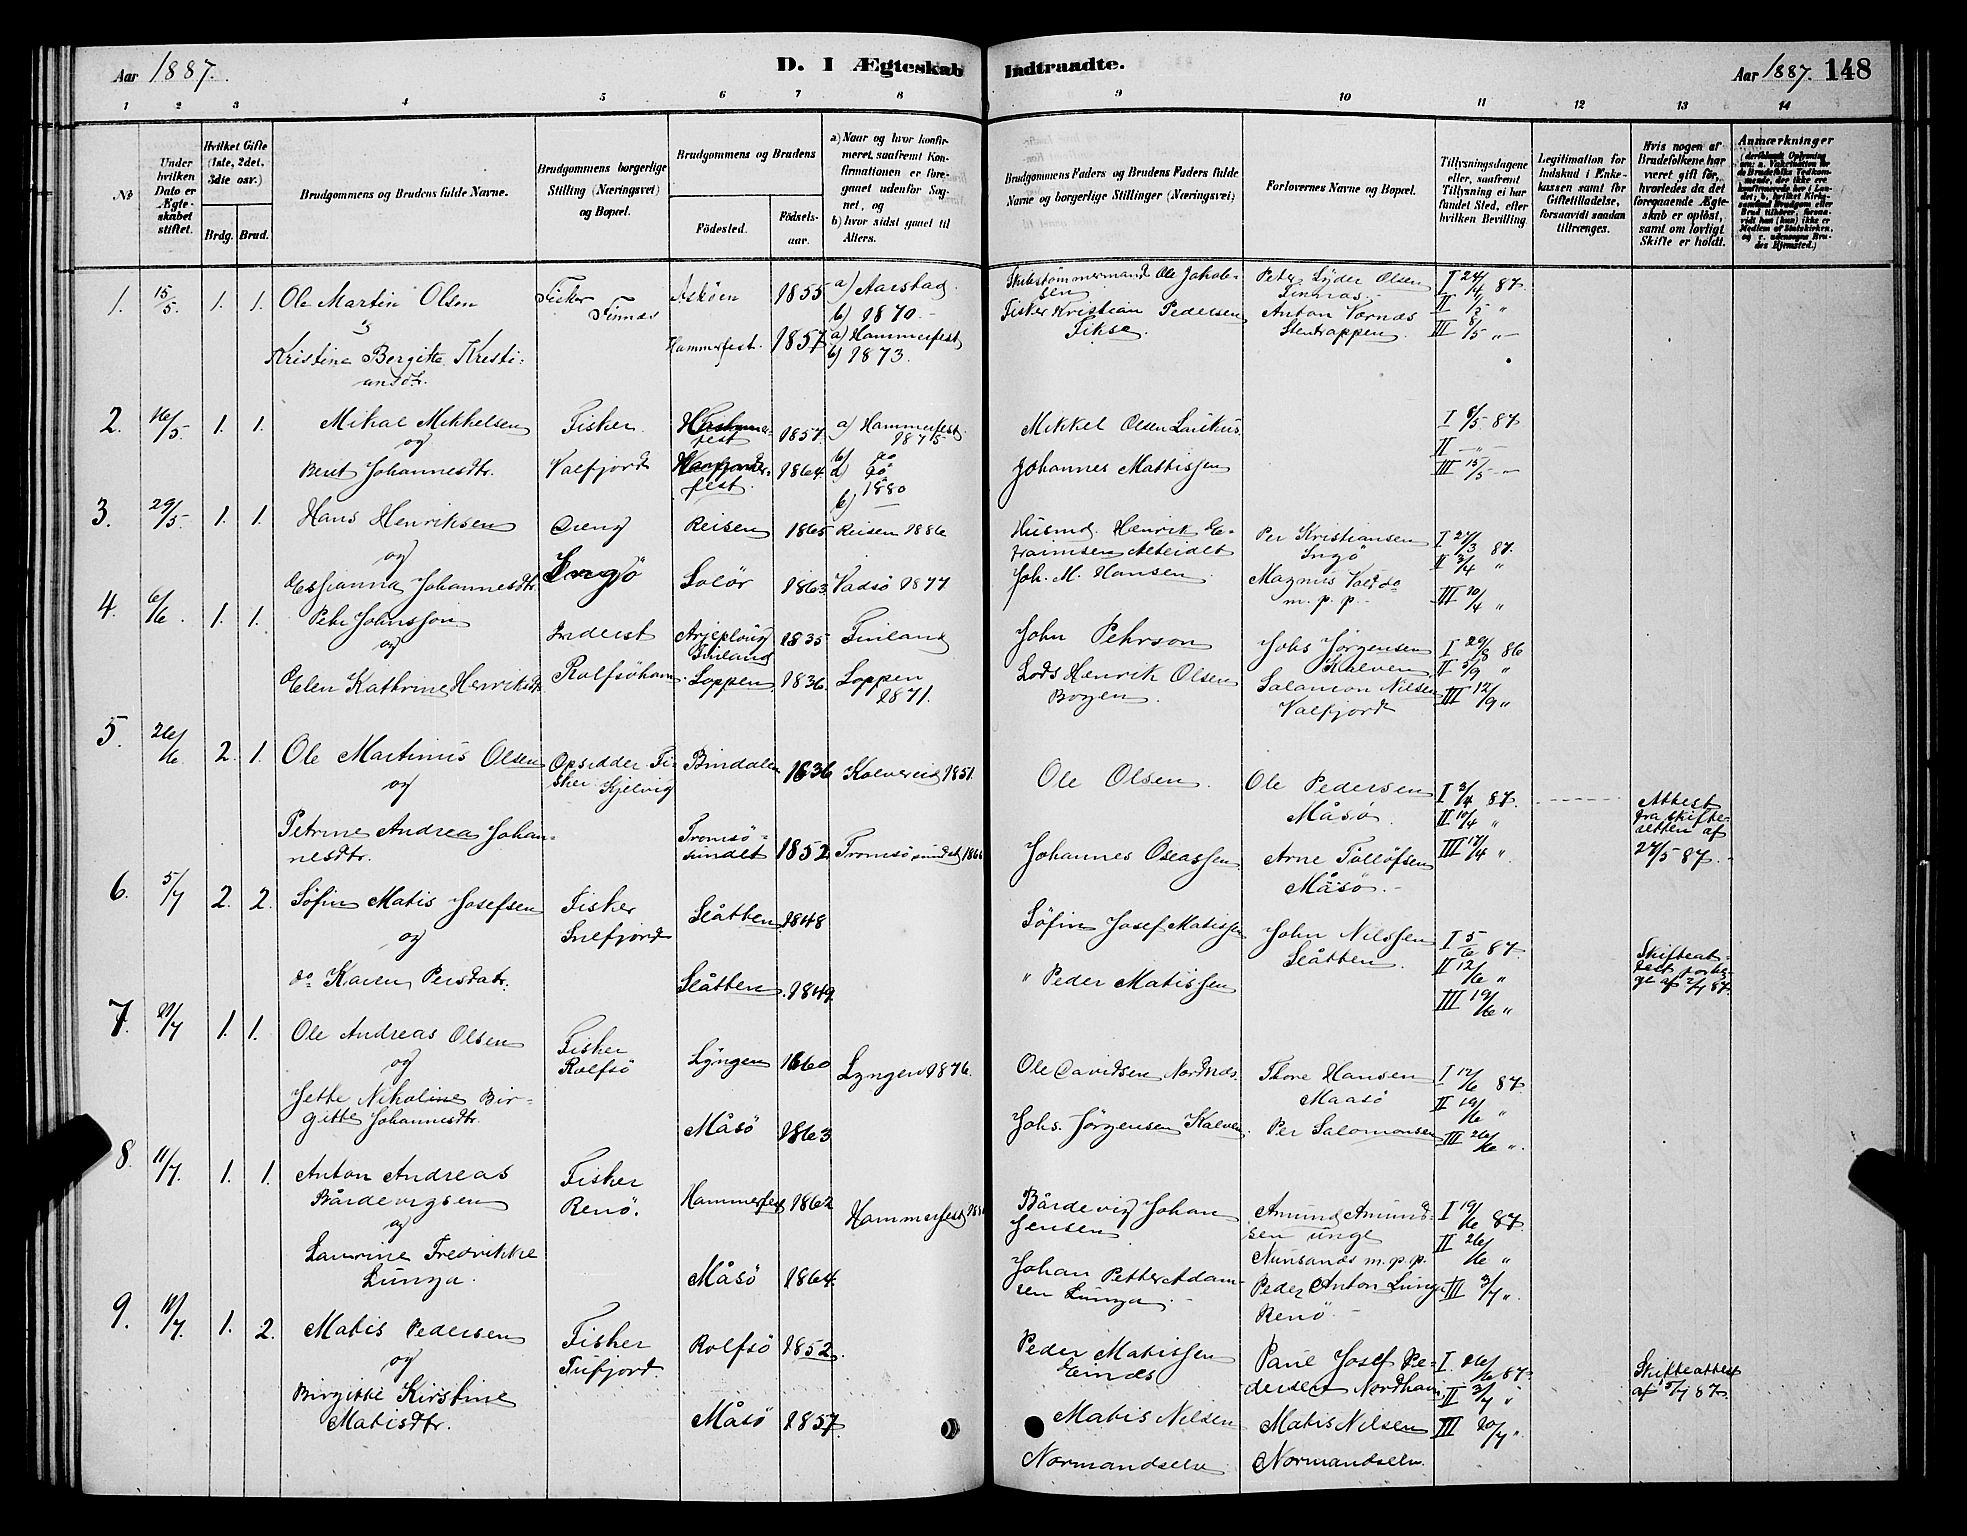 Aar 1887.
D. I Ægteskab
Indtraadte.
Aar 1887. 148
1 2 3 4 5 6 7 8
9 10 11 12 13 14
№
Under hvilken Dato er Ægteskabet stiftet.
Hvilket Gifte (1ste, 2det, 3die osv.)
Brdg. Brud.
Brudgommens og Brudens fulde Navne.
Brudgommens borgerlige Stilling (Næringsvei) og Bopæl.
Brudgommens og Brudens
Fødested.
Fødselsaar.
a) Naar og hvor konfirmeret, saafremt Konfirmationen er foregaaet udenfor Sognet, og
b) hvor sidst gaaet til Alters.
Brudgommens Faders og Brudens Faders fulde Navne og borgerlige Stillinger (Næringsvei)
Forlovernes Navne og Bopæl.
Tillysningsdagene eller, saafremt Tillysning ei har fundet Sted, efter hvilken Bevilling.
Legitimation for Indskud i Enkekassen samt for Giftetilladelse, forsaavidt saadan tiltrænges.
Hvis nogen af Brudefolkene har været gift før, hvorledes da det foregaaende Ægteskab er opløst, samt om lovligt Skifte er holdt.
Anmærkninger
1. 15/5 1. 1. Ole Martin Olsen
Fisker Finnæs
Askøen 1855 a) Aarstad.
b) 1870.
Kristine Bergitte Kristiansdt.
Hammerfest. 1857 a) Hammerfest
b) 1873.
Skibstømmermand Ole Jakobsen
Fisker Kristian Pedersen
Peder Lyder Olsen
Finnæs
Anton Værnes
I 24/4 87.
II 1/5 "
III 8/5 "
2. 16/5. 1. 1. Mikal Mikkelsen
og
Berit Johannesdtr.
Fisker
Valfjord
1857. a) Hammerfest
1875
b) do
1864. a) do
1880
b) —
Mikkel Olsen
Johannes Mathissen
I 8/5 87
II — " —
III 15/5 — "
3. 29/5. 1. 1. Hans Henriksen
og
Johannesdtr.
Dreng
Ingö
Reisen 1865 Reisen 1886
Solör 1863 Vadsö 1877
Husmd. Henrik
Joh. M. Hansen
Per Kristiansen
Ingö
Magnus
m. p. p.
I 27/3 87.
II 3/4 "
III 10/4 "
4. 6/6. 1. 1. Petr Johnsson
og
Elen Kathrine Henriksdtr
Inderst
Rolfsöhavn.
Arjeploug
Finland
1835 Finland
Loppen 1836. Loppen
1871.
John Pehrson
Lods Henrik Olsen
Bogen
Johs Jörgensen
Kalven
Salamon Nilsen
Valfjord
I 29/8 86
II 5/9 "
III 12/9 "
5. 26/6 2. 1. Ole Martinus Olsen
og
Petrine Andrea Johannesdtr.
Opsidder Fisker Kjelvig
Bindalen 1836 Kolvereid 1851.
Tromsösundet 1852 Tromsösundet
Ole Olsen.
Johannes Oseassen
Ole Pedersen
Måsö.
Arne Tollöfsen
Måsö.
I 3/4 87.
II 10/4 "
III 17/4 "
Attest
fra skifteretten af
27/5 87.
6. 5/7 2. 2. Söfin Matis Josefsen
og
do Karen Persdatr.
Fisker
Snefjord
Slåtten 1848
Slåtten 1849
Söfin Josef Matissen
" Peder Matissen
John Nilssen
Slåtten.
I 5/6 87.
II 12/6 "
III 19/6 "
Skifteattest
7. 1. 1. Ole Andreas Olsen
og
Jette Nikoline Birgitte Johannesdtr.
Fisker
Rolfsö
Lyngen 1860 Lyngen 1876.
Måsö 1863
Ole Davidsen Nordnæs.
Johs. Jörgensen Kalven.
Thore Hansen
Maasö
Per Salomonsen
I 12/6 87.
II 19/6 "
III 26/6 ".
8. 11/7. 1. 1. Anton Andreas
Bårdevigsen
og
Laurine Fredrikke
Lunga.
Fisker
Renö.
Hammerfest 1862 Hammerfest
Måsö 1864.
Bårdevig Johan
Jensen
Johan Petter Adamsen Lunga.
Amund Amundsen unge
m. p. p.
Peder Anton Lunga
Renö
I 19/6 87.
II 26/6 "
III 3/7 ".
9. 11/7. 1. 2. Matis Pedersen
og
Birgitte Kirstine
Matisdtr.
Fisker
Tufjord.
Rolfsö 1852.
Måsö 1857.
Peder Matissen
Matis Nilsen
Normandselv
Paul Josef Pedersen Nordhavn
Matis Nilsen
Normandselv.
I. 26/6 87.
II 3/7 "
III 10/7 ".
Skifteattest
af 5/7 87.